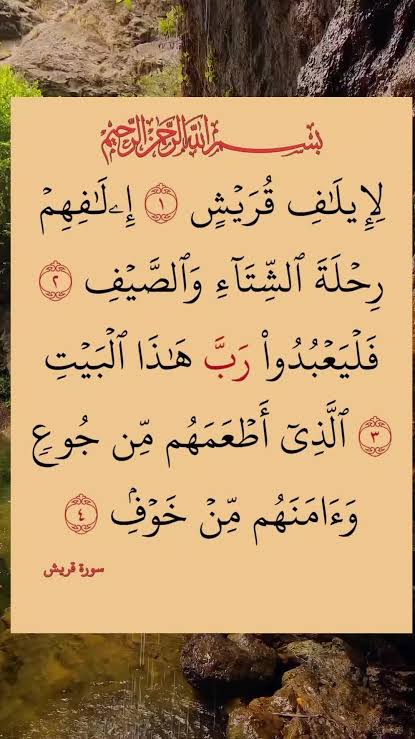 بسم الله الرحمن الرحيم
لِإِيلَٰفِ قُرَيۡشٍ ١ إِۦلَٰفِهِمۡ
رِحۡلَةَ ٱلشِّتَآءِ وَٱلصَّيۡفِ ٢
فَلۡيَعۡبُدُواْ رَبَّ هَٰذَا ٱلۡبَيۡتِ
٣ ٱلَّذِيٓ أَطۡعَمَهُم مِّن جُوعٖ
وَءَامَنَهُم مِّنۡ خَوۡفِۭ ٤
سورة قريش